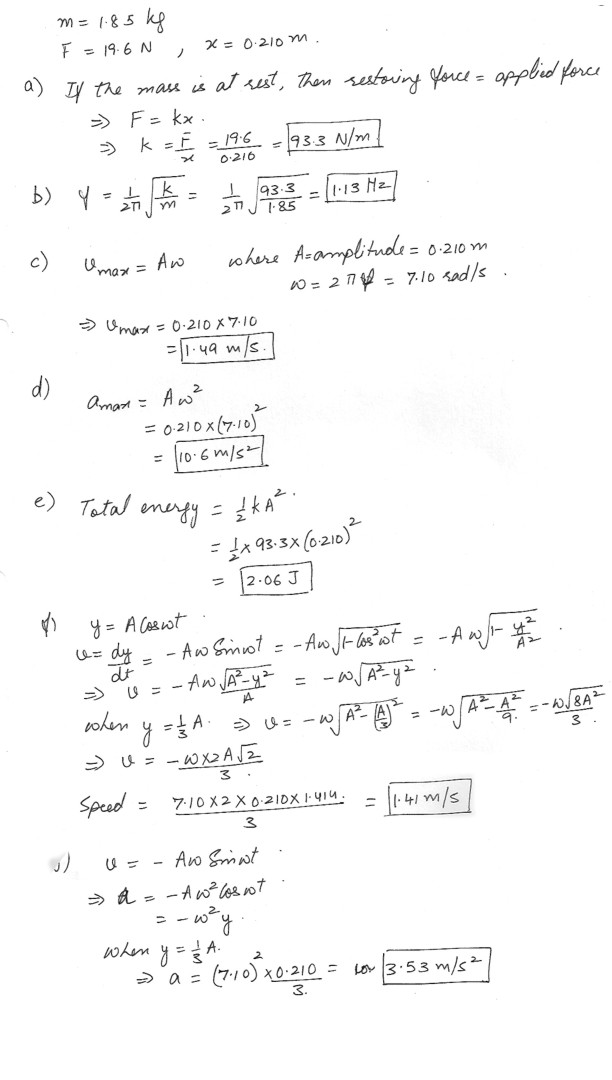 m = 1.85 kg
F = 19.6 N , x = 0.210 m.
a) If the mass is at rest, then restoring force = applied force
⇒ F = kx.
⇒ k = F/x = 19.6/0.210 = 93.3 N/m
b) f = 1/2π √(k/m) = 1/2π √(93.3/1.85) = 1.13 Hz
c) vmax = Aω where A = amplitude = 0.210 m
ω = 2πf = 7.10 rad/s .
⇒ vmax = 0.210 × 7.10
= 1.49 m/s.
d) amax = Aω²
= 0.210 × (7.10)²
= 10.6 m/s²
e) Total energy = ½ kA².
= ½ × 93.3 × (0.210)²
= 2.06 J
f) y = A Cos ωt .
v = dy/dt = - Aω Sin ωt = - Aω √(1 - Cos² ωt) = - Aω √(1 - y²/A²) .
⇒ v = - Aω √(A² - y²)/A = - ω √(A² - y²) .
when y = ⅓ A. ⇒ v = - ω √(A² - (A/3)²) = - ω √(A² - A²/9.) = - ω √(8A²)/3.
⇒ v = - ω × 2A√2/3.
Speed = 7.10 × 2 × 0.210 × 1.414./3 = 1.41 m/s
v = - Aω Sin ωt .
⇒ a = - Aω² Cos ωt .
= - ω² y .
when y = ⅓ A.
⇒ a = (7.10)² × 0.210/3. = 3.53 m/s²